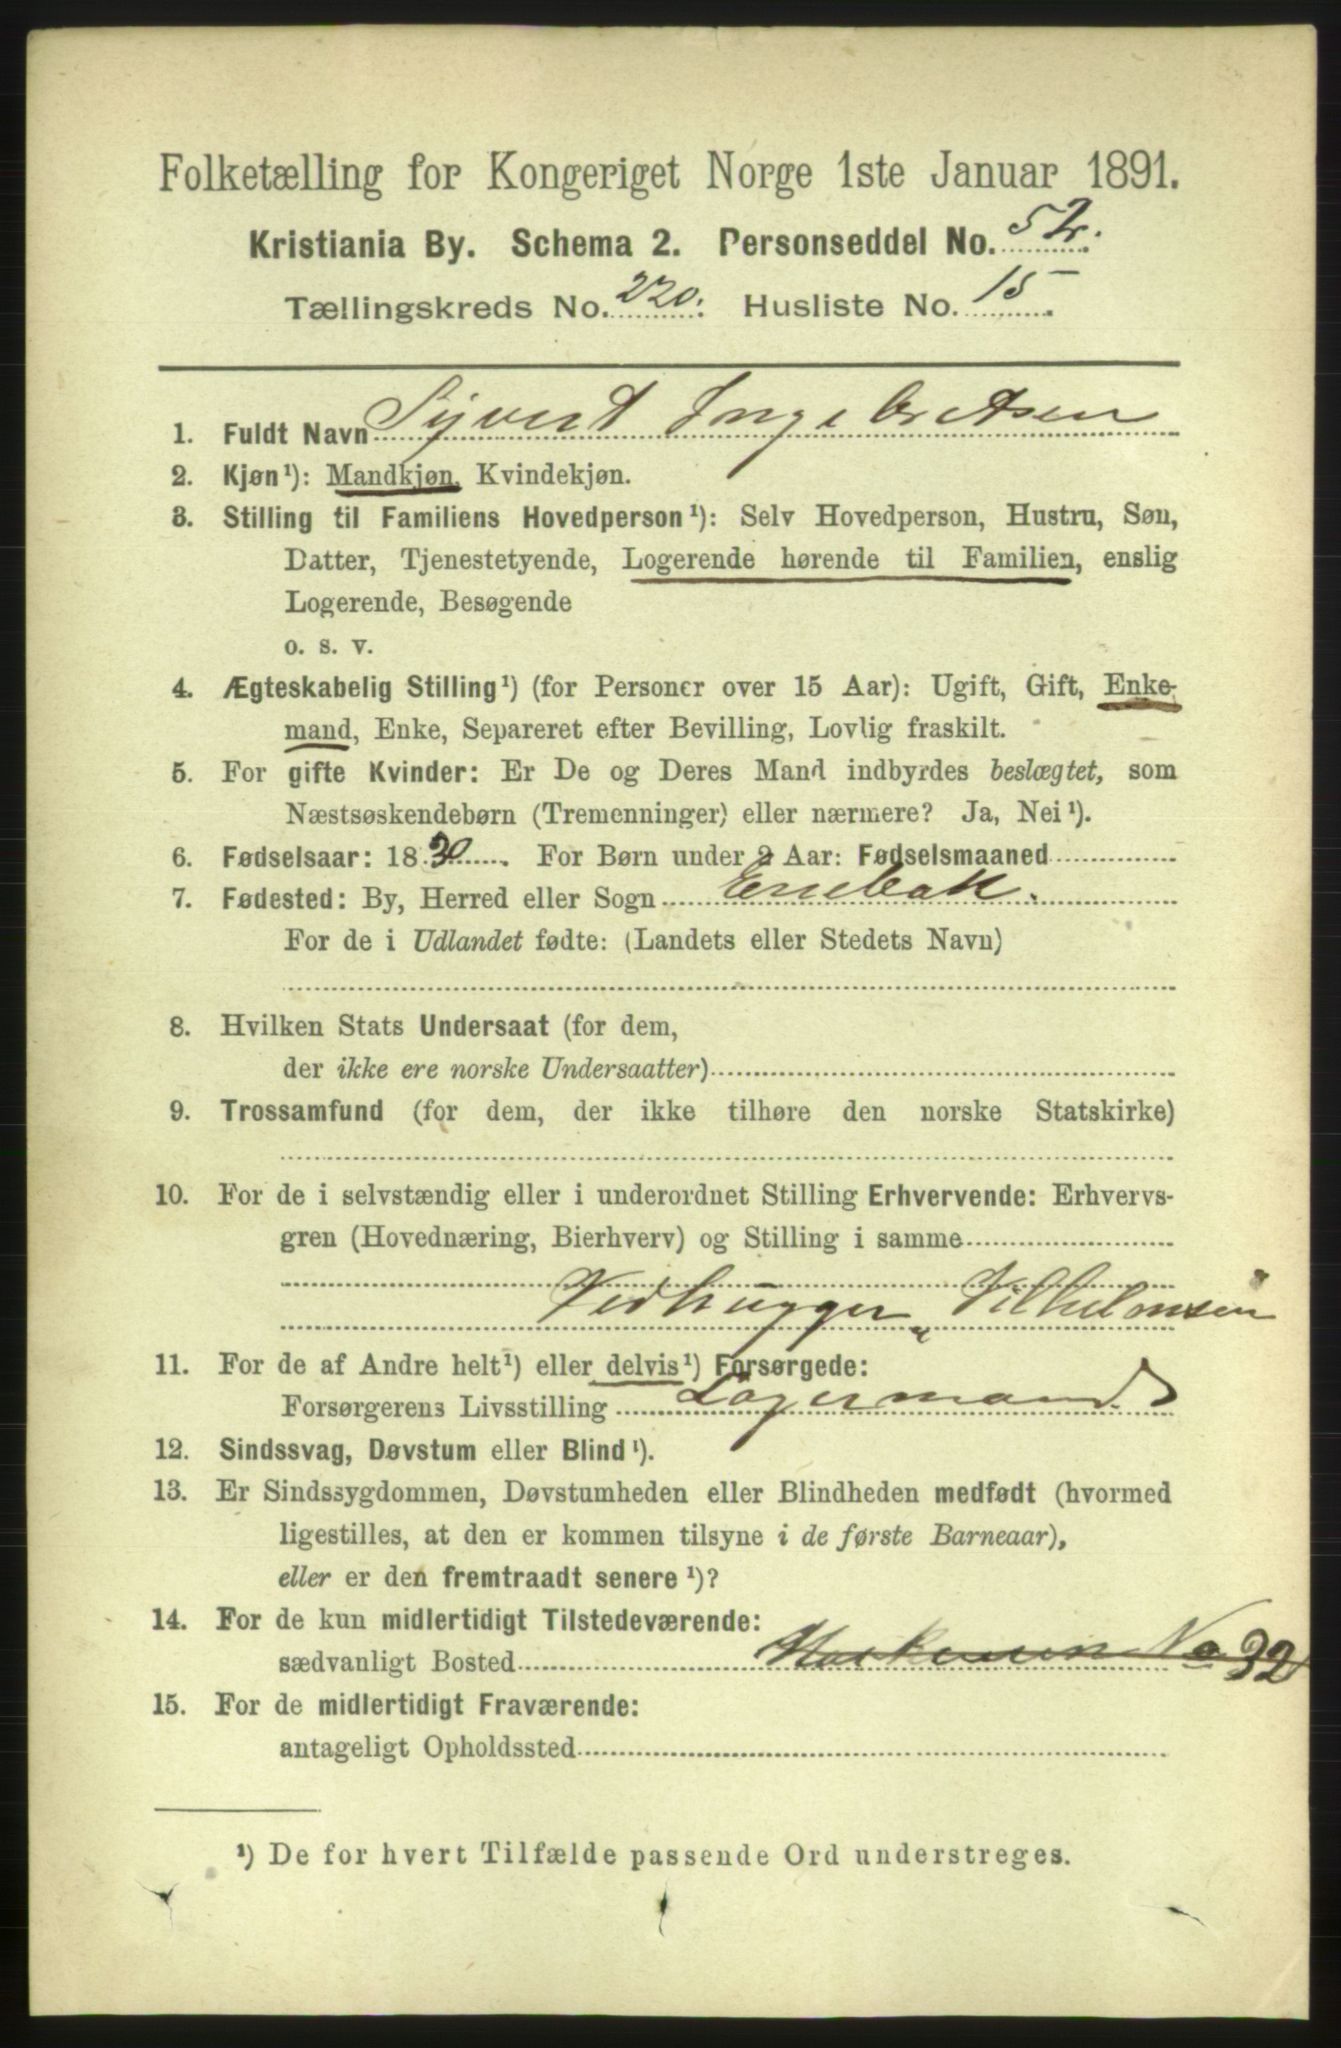 Folketælling for Kongeriget Norge 1ste Januar 1891.
Kristiania By. Schema 2. Personseddel No. 52.
Tællingskreds No. 220. Husliste No. 15
1. Fuldt Navn Syvert Ingebretsen
2. Kjøn¹): Mandkjøn, Kvindekjøn.
3. Stilling til Familiens Hovedperson¹): Selv Hovedperson, Hustru, Søn,
Datter, Tjenestetyende, Logerende hørende til Familien, enslig
Logerende, Besøgende
o. s. v.
4. Ægteskabelig Stilling¹) (for Personer over 15 Aar): Ugift, Gift, Enke-
mand, Enke, Separeret efter Bevilling, Lovlig fraskilt.
5. For gifte Kvinder: Er De og Deres Mand indbyrdes beslægtet, som
Næstsøskendebørn (Tremenninger) eller nærmere? Ja, Nei¹).
6. Fødselsaar: 1830. For Børn under 2 Aar: Fødselsmaaned
7. Fødested: By, Herred eller Sogn Enebak.
For de i Udlandet fødte: (Landets eller Stedets Navn)
8. Hvilken Stats Undersaat (for dem,
der ikke ere norske Undersaatter)
9. Trossamfund (for dem, der ikke tilhøre den norske Statskirke)
10. For de i selvstændig eller i underordnet Stilling Erhvervende: Erhvervs-
gren (Hovednæring, Bierhverv) og Stilling i samme
Vedhugger Vilhelmsen
11. For de af Andre helt¹) eller delvis¹) Forsørgede:
Forsørgerens Livsstilling Lagermand
12. Sindssvag, Døvstum eller Blind¹).
13. Er Sindssygdommen, Døvstumheden eller Blindheden medfødt (hvormed
ligestilles, at den er kommen tilsyne i de første Barneaar),
eller er den fremtraadt senere¹)?
14. For de kun midlertidigt Tilstedeværende:
sædvanligt Bosted No 32
15. For de midlertidigt Fraværende:
antageligt Opholdssted
¹) De for hvert Tilfælde passende Ord understreges.